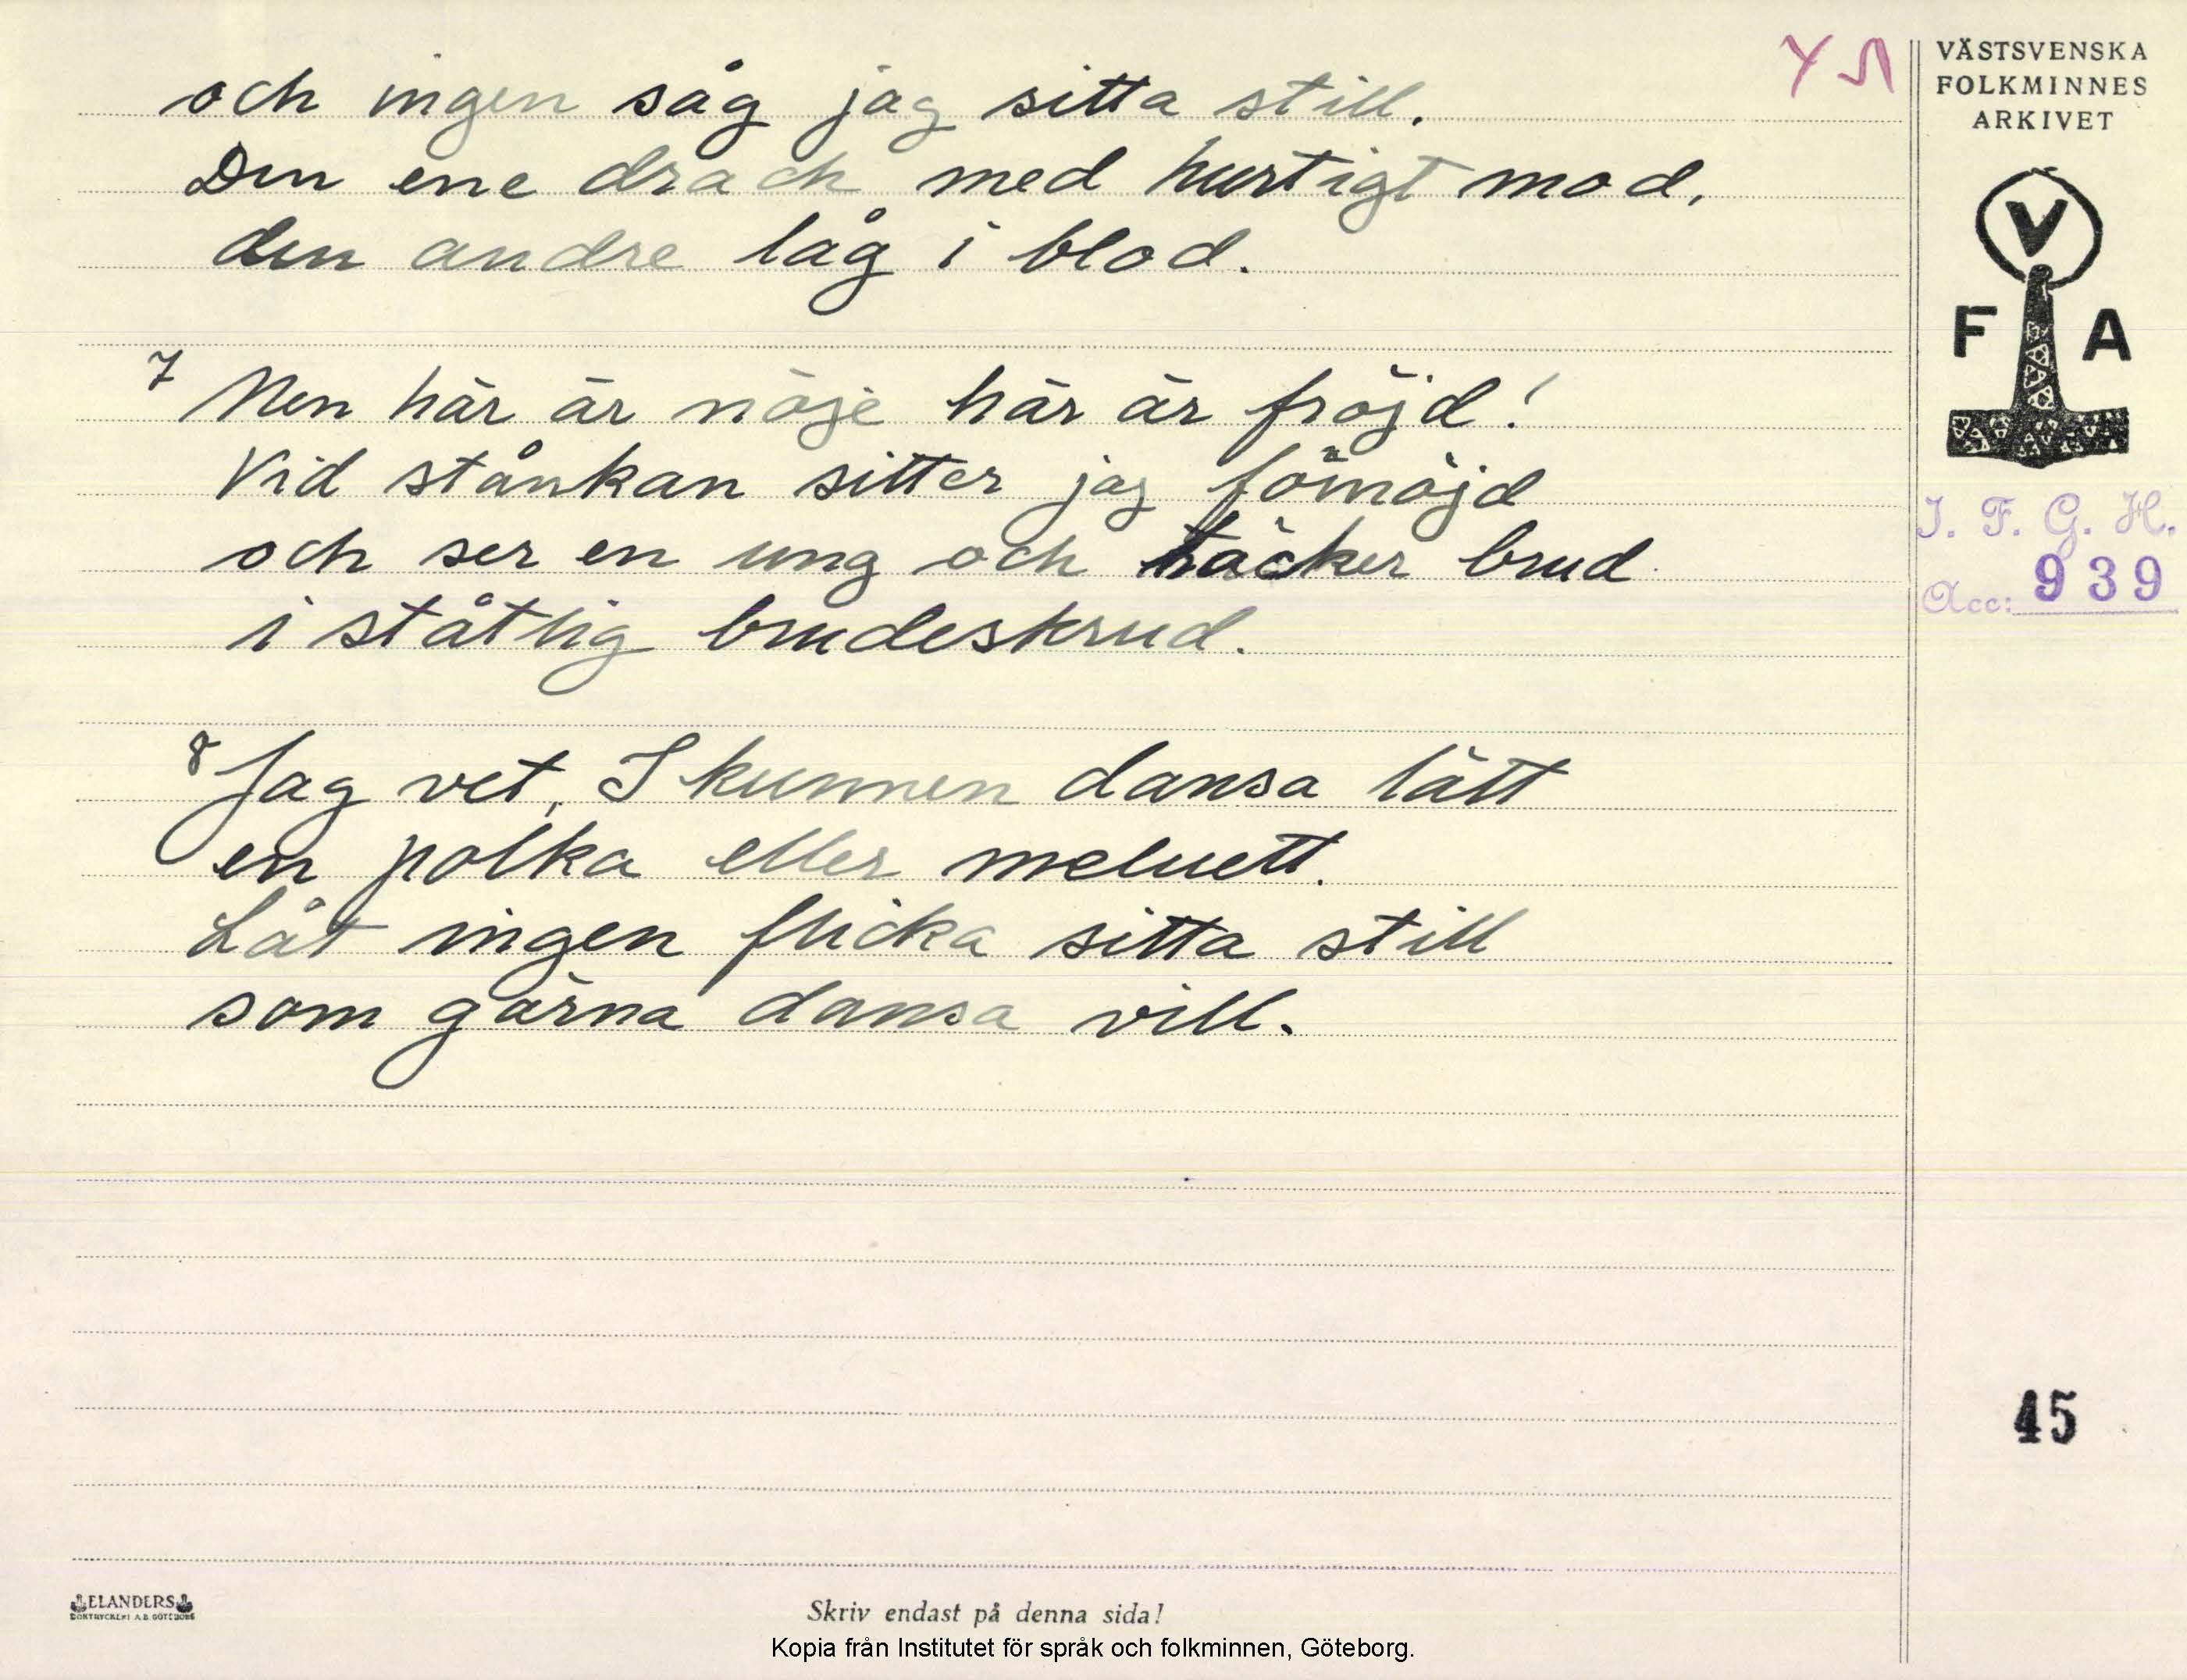 och ingen såg jag sitta still.
Den ene drack med hurtigt mod,
den andre låg i blod.
7 Men här är nöje här är fröjd!
Vid stånkan sitter jag förnöjd
och ser en ung och täcker brud
i ståtlig brudeskrud.
8 Jag vet, I kunnen dansa lätt
en polka eller meluett.
Låt ingen flicka sitta still
som gärna dansa vill.
VÄSTSVENSKA
FOLKMINNES
ARKIVET
V
F A
I. F. G. H.
Acc: 939
45
ELANDERS
BOKTRYCKERI A.B. GÖTEBORG
Skriv endast på denna sida!
Kopia från Institutet för språk och folkminnen, Göteborg.